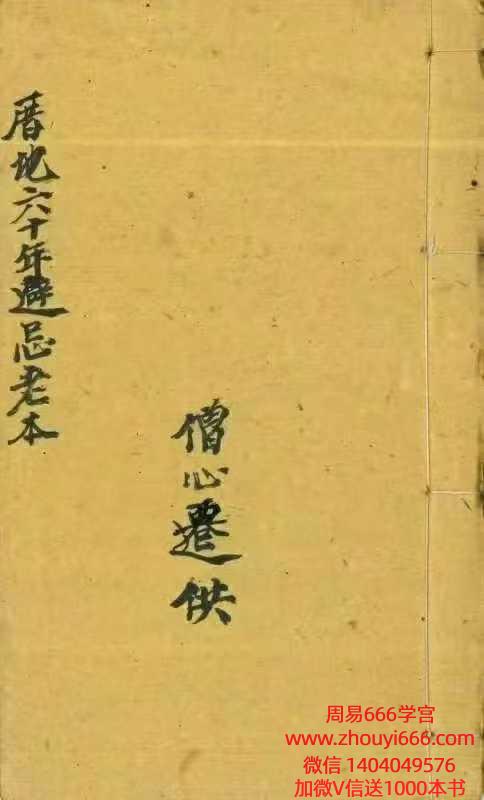 厝地六十年避忌老本
僧心遷供
周易666学宫
www.zhouyi666.com
微信 1404049576
加微V信送1000本书